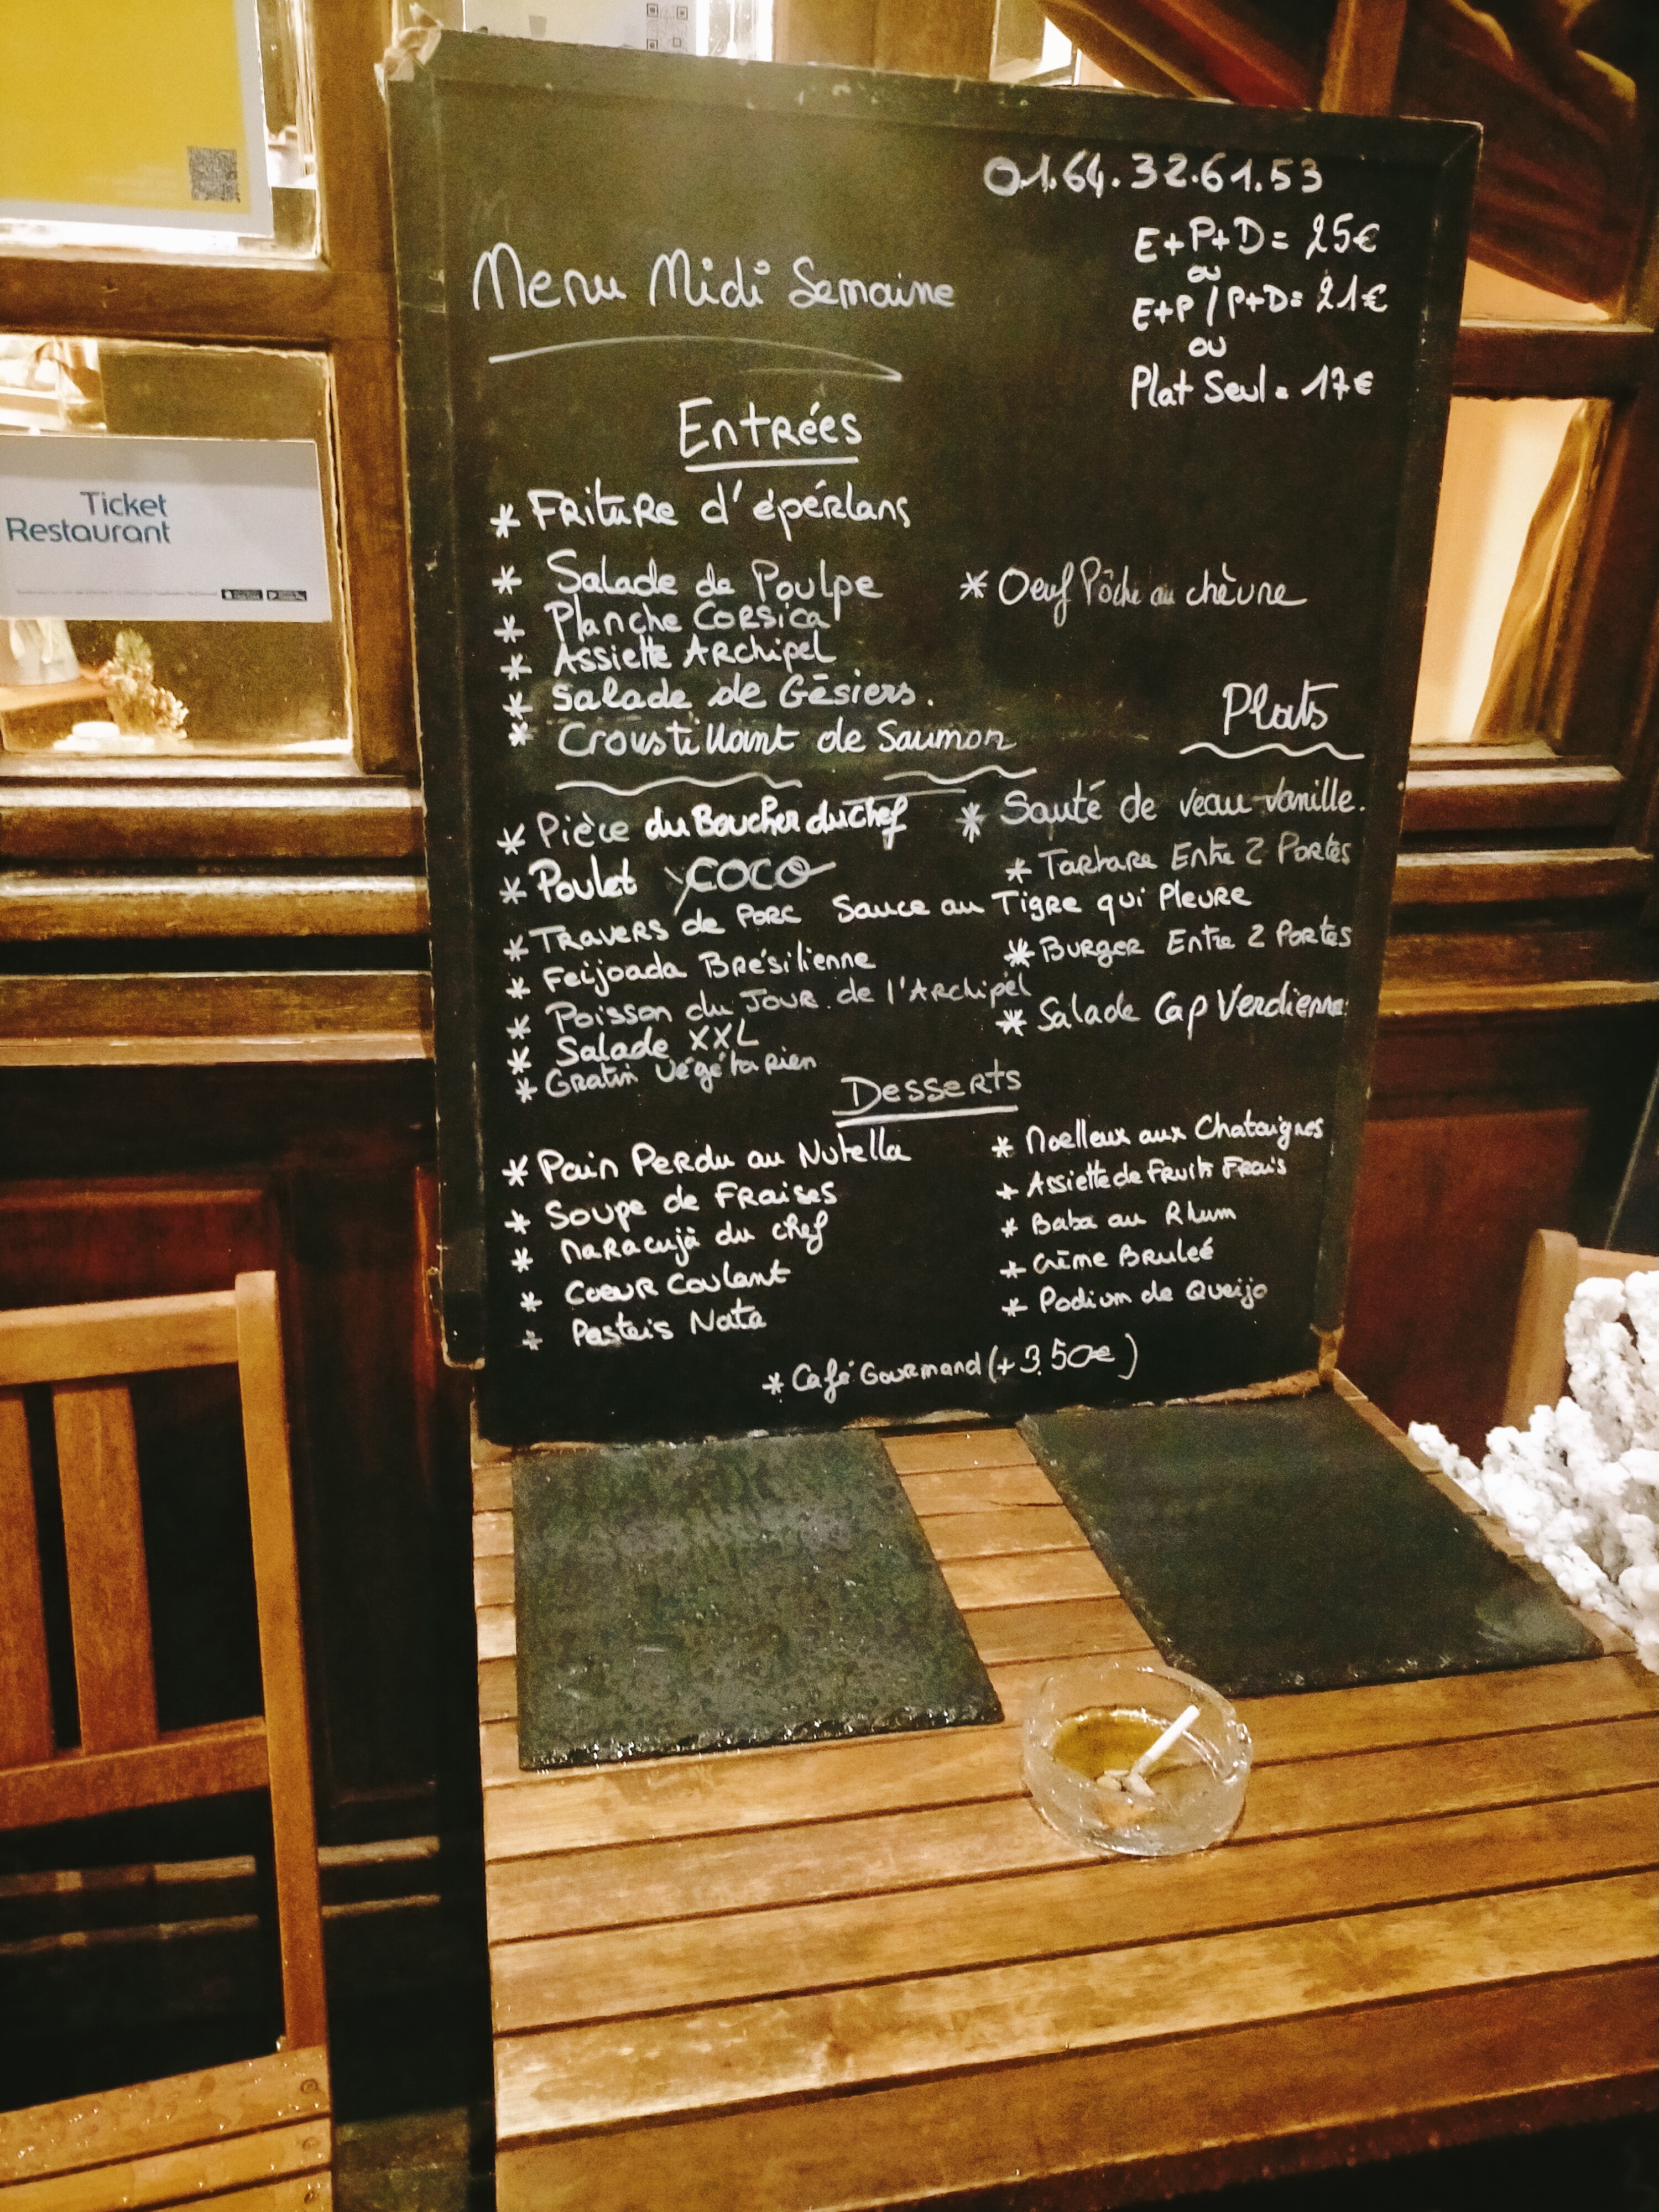 01.64.32.61.53
E+P+D= 25€
ou
E+P / P+D= 21€
ou
Plat Seul = 17€
Menu Midi Semaine
Entrées
* Friture d'épérlans
* Salade de Poulpe
* Planche Corsica
* Assiette Archipel
* Salade de Gésiers.
* Croustillant de Saumon
* Oeuf Pôché au chèvre
Plats
* Pièce du Boucher du Chef
* Poulet COCO
* Travers de Porc Sauce au Tigre qui Pleure
* Feijoada Brésilienne
* Poisson du Jour de l'Archipel
* Salade XXL
* Gratin végétarien
* Sauté de veau vanille.
* Tartare Entre 2 Portes
* Burger Entre 2 Portes
* Salade Cap Verdienne
Desserts
* Pain Perdu au Nutella
* Soupe de Fraises
* Maracujà du chef
* Coeur Coulant
* Pasteis Nata
* Moelleux aux Chataignes
* Assiette de Fruits Frais
* Baba au Rhum
* Crème Bruleé
* Podium de Queijo
* Café Gourmand (+3.50€)
Ticket
Restaurant